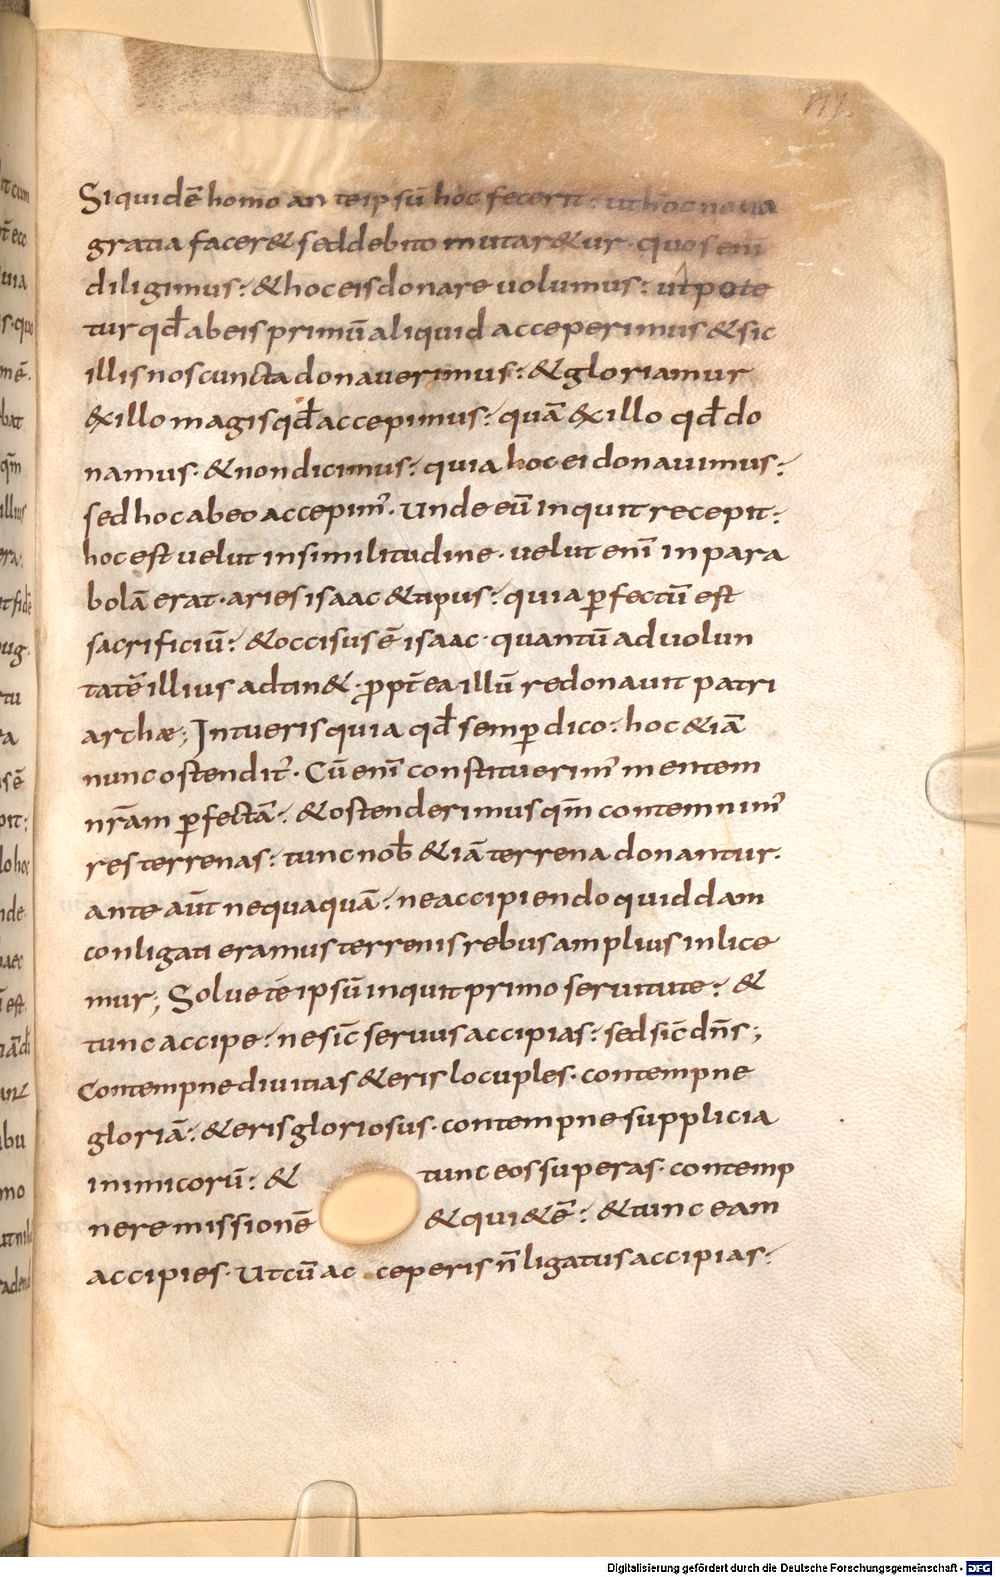 Siquidē homo an te ipsū hoc fecerit: ut hoc
gratia facer& sed debito mutar&ur· quos eni
diligimus: & hoc eis donare uolumus: utpote
tur qđ ab eis primū aliquid acceperimus & sic
illis nos cuncta donauerimus: & gloriamur
& illo magis qđ accepimus: quā & illo qđ do
namus· & non dicimus: quia hoc ei donauimus:
sed hoc ab eo accepim᾿· Unde eū inquit recepit:
hoc est uelut in similitudine· uelut enī in para
bolā erat· aries isaac & tipus: quia ꝑfectū est
sacrificiū: & occisus ē isaac· quantū ad uolun
tatē illius adtin&· ꝓpt̄ ea illū redonauit patri
archæ; Intueris quia qđ semꝑ dico: hoc & iā
nunc ostendit᾿· Cū enī constituerim᾿ mentem
nr̄am ꝑfectā: & ostenderimus qm̄ contemnim᾿
res terrenas: tunc nob̄ & iā terrena donantur·
ante aūt nequaquā: ne accipiendo quiddam
conligati eramus terrenis rebus amplius inlice
mur; Solue te ipsū inquit primo seruitute: &
tunc accipe: ne sic̄ seruus accipias: sed sic̄ dn̄s;
Contempne diuitias & eris locuples· contempne
gloriā: & eris gloriosus· contempne supplicia
inimicorū: & tunc eos superas· contemp
nere missionē & qui&ē: & tunc eam
accipies· Ut cū ac ceperis n̄ ligatus accipias:
Digitalisierung gefördert durch die Deutsche Forschungsgemeinschaft - DFG